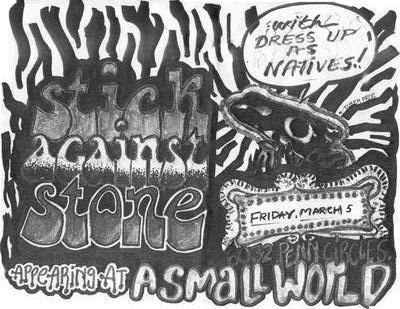 with
DRESS UP
AS
NATIVES!
stick
against
stone
FRIDAY, MARCH 5
PENN CIRCLE S.
APPEARING AT
A SMALL WORLD